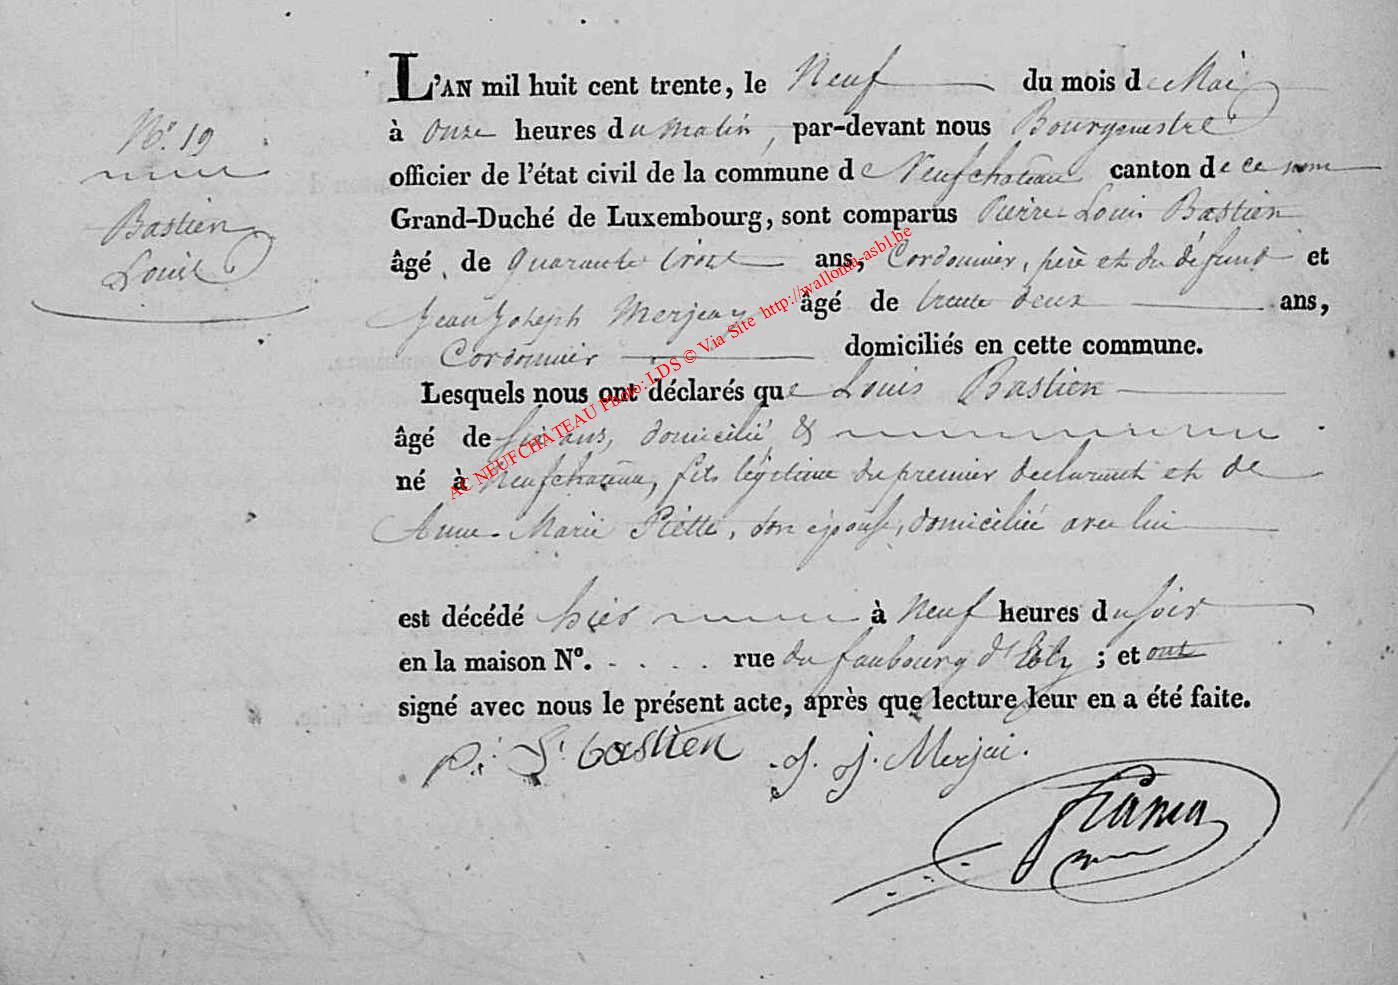 N.° 19
Bastien
Louis
L'AN mil huit cent trente, le Neuf du mois de Mai
à onze heures du matin, par-devant nous Bourgmestre
officier de l'état civil de la commune de Neufchateau canton de ce nom
Grand-Duché de Luxembourg, sont comparus Pierre Louis Bastien
âgé de Quarante trois ans, Cordonnier, père et du défunt et
Jean Joseph Merjeay âgé de trente deux ans,
Cordonnier domiciliés en cette commune.
Lesquels nous ont déclarés que Louis Bastien
âgé de six ans, domicilié &
né à Neufchateau, fils légitime du premier declarant et de
Anne-Marie Piette, son épouse, domiciliée avec lui
est décédé hier à Neuf heures du soir
en la maison N°. . . . . rue du faubourg d' ; et ont
signé avec nous le présent acte, après que lecture leur en a été faite.
P. L. bastien J. J. Merjai.
AC NEUFCHATEAU Photo: LDS © Via Site http://wallonia-asbl.be